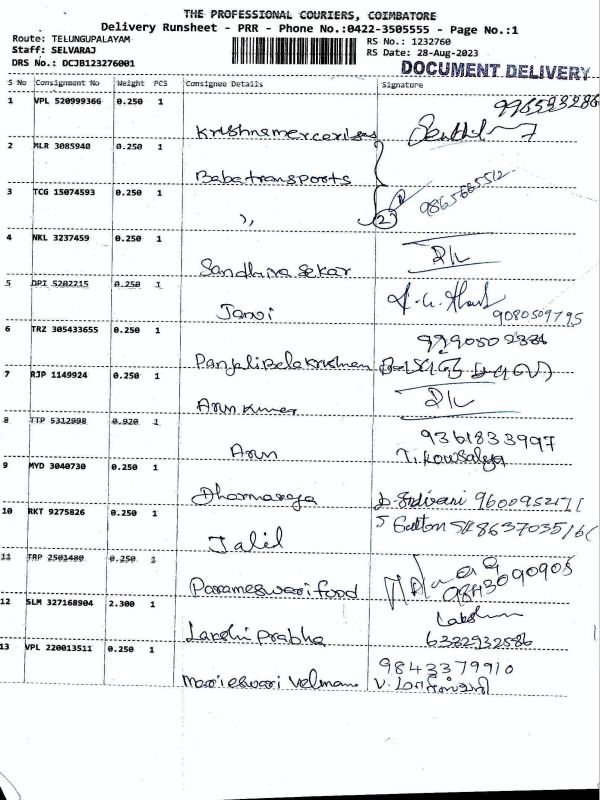 THE PROFESSIONAL COURIERS, COIMBATORE
Delivery Runsheet - PRR - Phone No.:0422-3505555 - Page No.:1
Route: TELUNGUPALAYAM
Staff: SELVARAJ
DRS No.: DCJB123276001
RS No.: 1232760
RS Date: 28-Aug-2023
DOCUMENT DELIVERY
S No Consignment No Weight PCS Consignee Details Signature
1 VPL 520999366 0.250 1
Krishnamercerisas
2 MLR 3085940 0.250 1
Babatransports
3 TCG 15074593 0.250 1 2 9865665512
,,
4 NKL 3237459 0.250 1
Sandhiya Sekar
5 DPI 5202215 0.250 1
Janvi 9080509795
6 TRZ 305433655 0.250 1
Panjali Balakrishnan
7 RJP 1149924 0.250 1
Arun Kumar
8 TTP 5312998 0.920 1 9361833997
Arun T. Kowsalya
9 MYD 3040730 0.250 1
Dharmaraja
10 RKT 9275826 0.250 1
Jalil
11 TRP 2501480 0.250 1 9843090905
Parameswari food
12 SLM 327168904 2.300 1
Lakshi Prabha 6382932586
13 VPL 220013511 0.250 1 9843379910
Marieswari Velmani